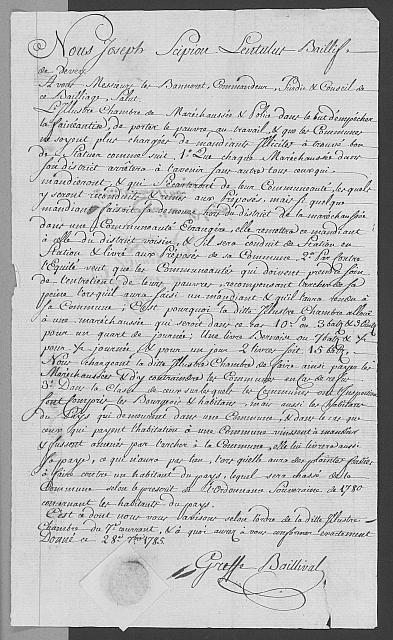 Nous Joseph Scipion Lentulus Baillif
de Vevey
A vous Messieurs les Banneret, Commandeur, Sindic & Conseil de
ce Bailliage, Salut
L'Illustre Chambre de Maréchaussée & Police dans le but d'empêcher
la faineantise, de porter le pauvre au travail, & que les Communes
ne soyent plus chargées de mandiants illicites a trouvé bon
de Statuer comme suit. 1º. Que chaque Maréchaussée dans
son district arretera à l'avenir sans autres tous ceux qui
mandieront, & qui s'ecarteront de leur Communauté, lesquels
y seront reconduits & remis aux Préposés, mais si quelque
mandiant faisoit sa demeure hors du district de la maréchaussée
dans une Communauté Etrangère, elle remettra ce mandiant
à celle du district voisin, & il sera conduit de Station en
Station & livré aux Préposés de sa Commune. 2º. Par contre
l'Equité veut que les Communautés qui doivent prendre soin
de l'entretient de leurs pauvres, recompensent l'archer de sa
peine lorsqu'il aura saisi un mandiant & qu'il l'aura rendu à
sa Commune; C'est pourquoi la ditte Illustre Chambre alloue
à une maréchaussée qui seroit dans ce cas 10 s. ou 3 batz & 3 Creutz
pour un quart de journée; Une livre Bernoise ou 7 batz & ½
pour ½ journée, & pour un jour 2 livres soit 15 batz.
Nous chargeons la ditte Illustre Chambre de faire ainsi payer les
Maréchaussées & d'y contraindre les Communes en cas de refus
3º. Dans la Classe de ceux sur lesquels les Communes ont Inspection
sont compris les Bourgeois & habitans, mais aussi les habitans
du Pays qui demeurent dans une Commune, & dans le cas que
ceux qui payent l'habitation à une Commune vinssent à mandier
& fussent amenés par l'archer à la Commune, elle lui livrera aussi
sa paye, ce qui n'aura pas lieu, lors qu'elle aura des plaintes fondées
à faire contre un habitant du pays, lequel sera chassé de la
Commune selon le prescrit de l'Ordonnance Souveraine de 1780
concernant les habitants du pays.
C'est de dont nous vous avisons selon l'ordre de la ditte Illustre
Chambre du 7e. courrant, & à quoi aurez à vous conformer exactement
Donné ce 28e. 7bre 1785.
Greffe Baillival